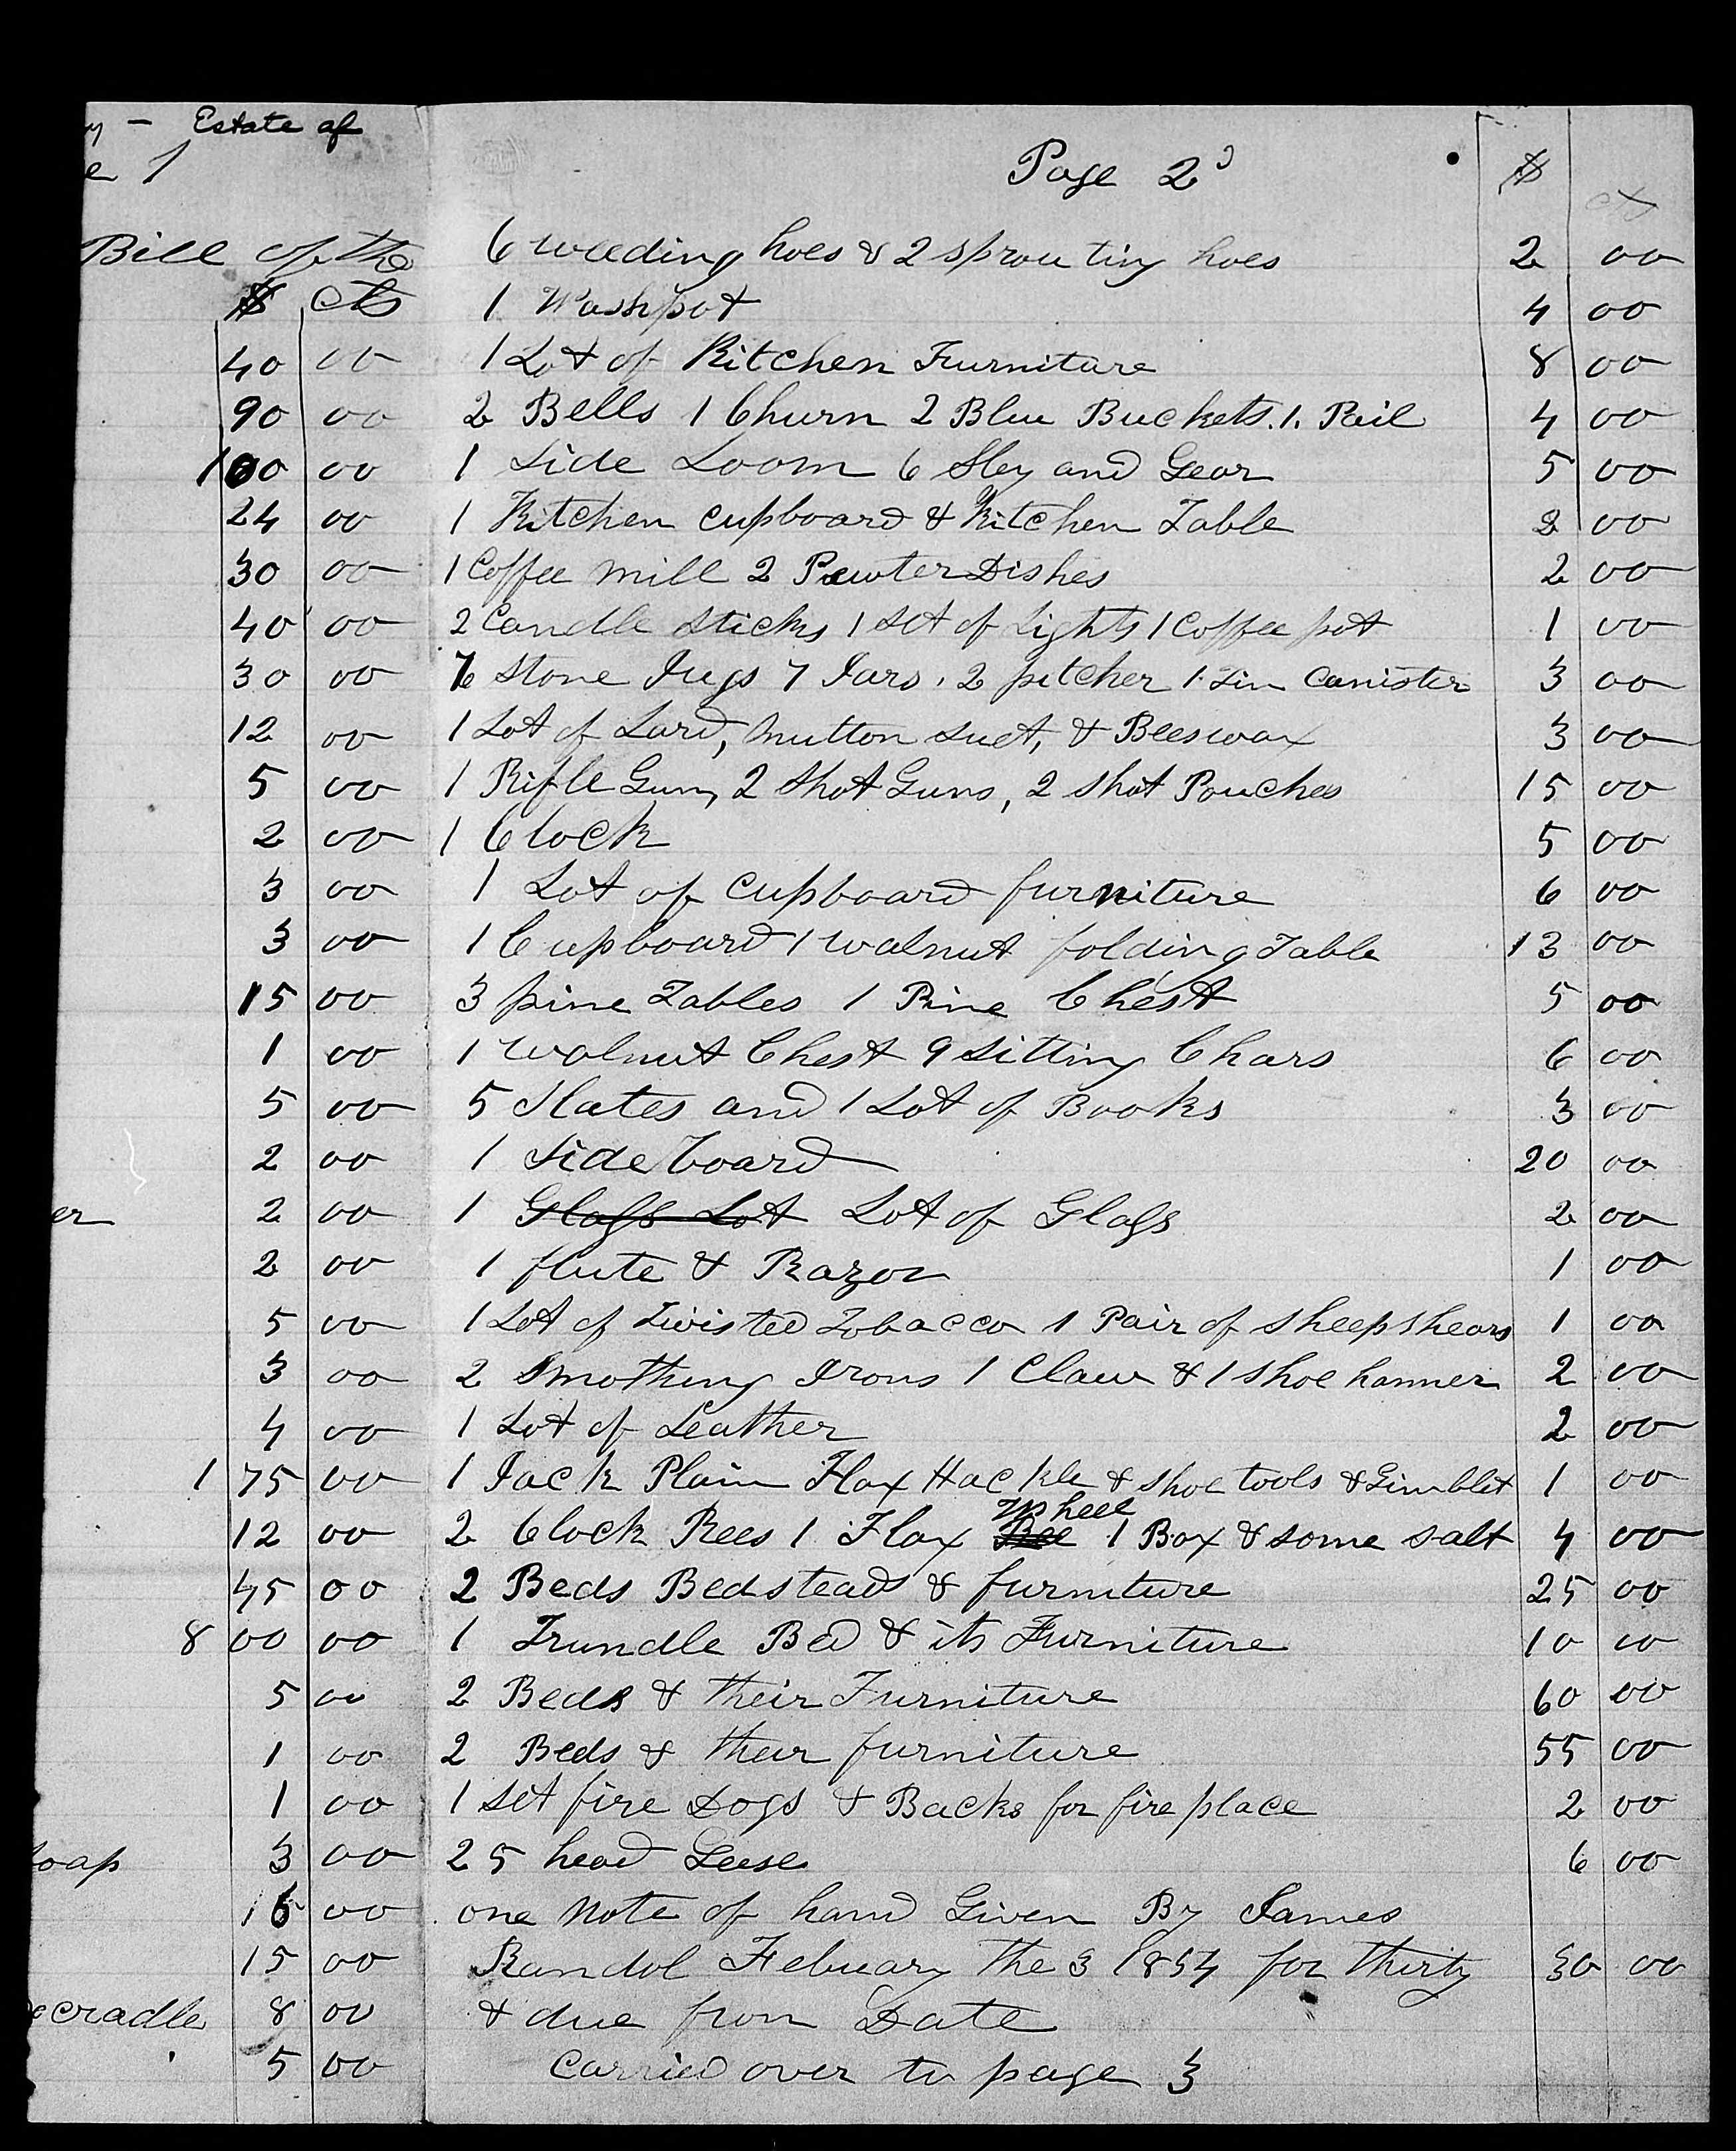 y - Estate of
e 1
Bill of the
$ cts
40 00
90 00
100 00
24 00
30 00
40 00
30 00
12 00
5 00
2 00
3 00
3 00
15 00
1 00
5 00
2 00
er 2 00
2 00
5 00
3 00
4 00
175 00
12 00
45 00
800 00
5 00
1 00
1 00
soap 3 00
16 00
15 00
cradle 8 00
5 00
Page 2d $ cts
6 weeding hoes & 2 sprouting hoes 2 00
1 Washpot 4 00
1 Lot of Kitchen Furniture 8 00
2 Bells 1 Churn 2 Blue Buckets. 1. Pail 4 00
1 Side Loom 6 Sley and Gear 5 00
1 Kitchen cupboard & Kitchen Table 2 00
1 Coffee mill 2 Pewter Dishes 2 00
2 Candle sticks 1 set of Lights 1 Coffee pot 1 00
Stone Jugs 7 Jars, 2 pitcher 1 Tin Canister 3 00
1 Lot of Lard, mutton suet, & Beeswax 3 00
1 Rifle Gun, 2 Shot Guns, 2 shot Pouches 15 00
1 Clock 5 00
1 Lot of cupboard furniture 6 00
1 Cupboard 1 walnut folding Table 13 00
3 pine Tables 1 Pine Chest 5 00
1 walnut Chest 9 sitting Chars 6 00
5 Slates and 1 Lot of Books 3 00
1 Side board 20 00
1 Glass Lot Lot of Glass 2 00
1 flute & Razor 1 00
1 Lot of Twisted Tobacco 1 Pair of sheep shears 1 00
2 Smothing Irons 1 Claw & 1 shoe hammer 2 00
1 Lot of Leather 2 00
1 Jack Plain Flax Hackle & shoe tools & Gimblet 1 00
2 Clock Rees 1 Flax Wheel 1 Box & some salt 4 00
2 Beds Bedstead & furniture 25 00
1 Trundle Bed & its Furniture 10 00
2 Beds & their Furniture 60 00
2 Beds & their furniture 55 00
1 set fire Dogs & Backs for fire place 2 00
25 head Geese 6 00
one Note of hand Given By James
Randol Febuary the 3 1854 for thirty 30 00
& due from Date
Carried over to page 3